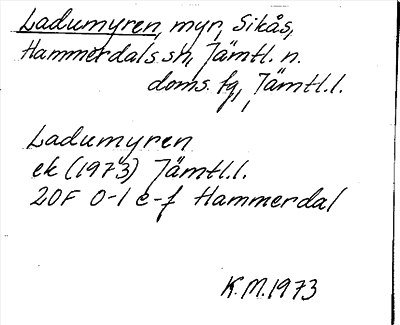 Ladumyren, myr, Sikås,
Hammerdals sn, Jämtl. n.
doms. fg, Jämtl.l.
Ladumyren
ek (1973) Jämtl.l.
20F 0-1 e-f Hammerdal
K.M.1973